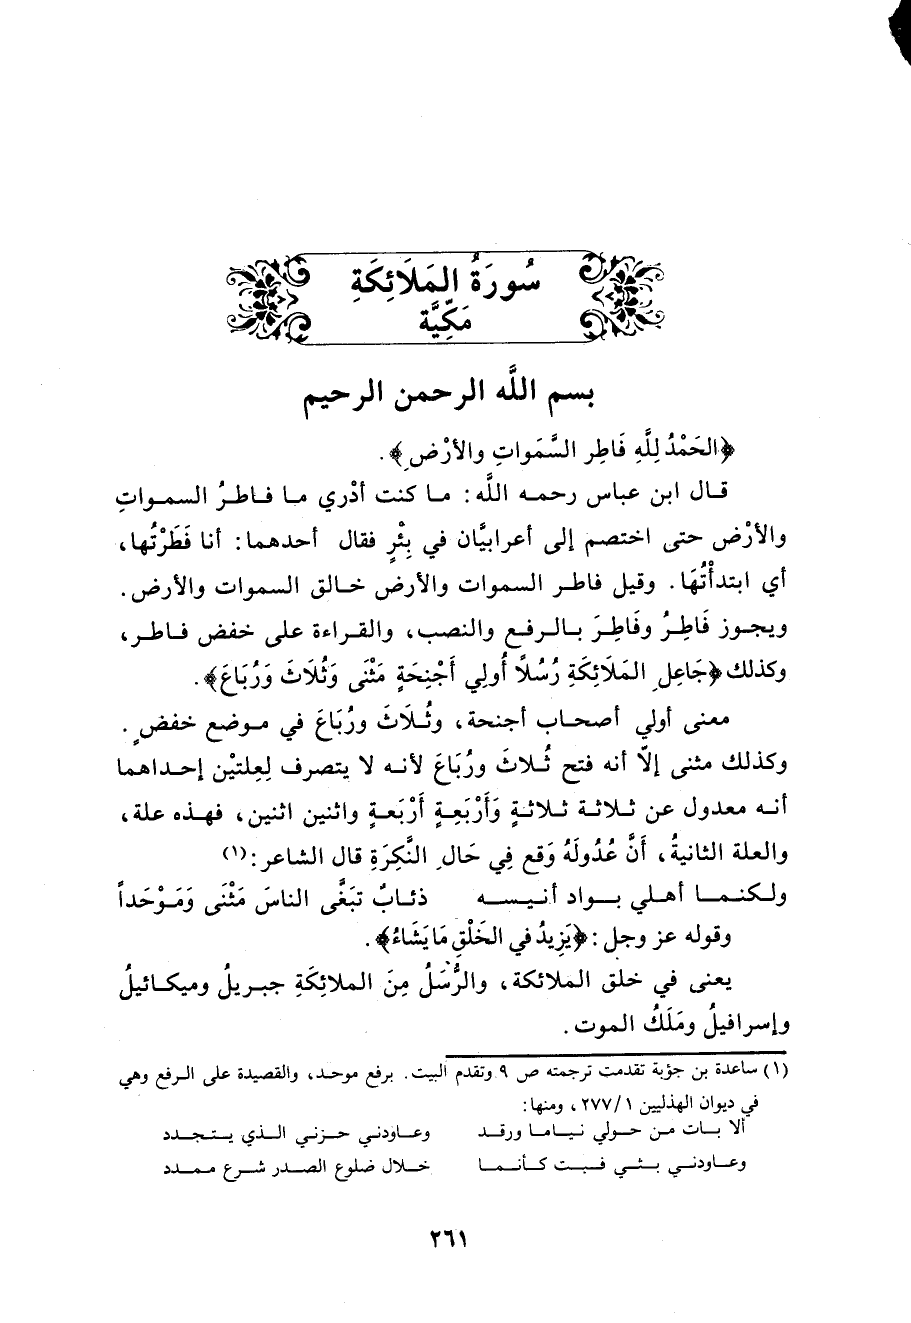 سُورَةُ المَلَائِكَةِ
مَكِّيَّة
بسم اللَّه الرحمن الرحيم
﴿الحَمْدُ لِلَّهِ فَاطِرِ السَّمَواتِ والأَرْضِ﴾.
قـال ابن عباس رحمـه اللَّه: مـا كنت أَدْرِي مـا فـاطرُ السمـواتِ
والأَرْضِ حتى اختصم إلى أعرابيَّان في بِئْرٍ فقال أحدهما: أنا فَطَرْتُها،
أي ابتدأْتُهَا. وقيل فاطر السموات والأرض خالق السموات والأرض.
ويجـوز فَاطِرُ وفَاطِرَ بـالـرفـع والنصب، والقـراءة على خفض فـاطر،
وكذلك ﴿جَاعِلِ المَلَائِكَةِ رُسُلًا أُولِي أَجْنِحَةٍ مَثْنَى وَثُلَاثَ وَرُبَاعَ﴾.
معنى أولي أصحاب أجنحة، وثُلَاثَ ورُبَاعَ في موضع خفضٍ.
وكذلك مثنى إلّا أنه فتح ثُلاثَ ورُبَاعَ لأنـه لا يتصرف لِعِلتيْن إحداهما
أنـه معدول عن ثـلاثـة ثـلاثـةٍ وَأَرْبَعِـةٍ أَرْبَعـةٍ واثنين اثنين، فهـذه علة،
والعلة الثانيةُ، أَنَّ عُدُولَهُ وَقع فِي حَالِ النَّكِرَةِ قال الشاعر:(١)
ولـكنمـا أهـلي بـواد أنيسـه ذئـابٌ تبَغَّى الناسَ مَثْنَى وَمَوْحَداً
وقوله عز وجل: ﴿يَزِيدُ في الخَلْقِ مَا يَشَاءُ﴾.
يعنى في خلق الملائكة، والرُّسُلُ مِنَ الملائِكَةِ جبريلُ وميكـائيلُ
وإسرافيلُ ومَلَكُ الموت.
(١) ساعدة بن جؤبة تقدمت ترجمته ص ٩ وتقدم البيت. برفع موحد، والقصيدة على الرفع وهي
في ديوان الهذليين ١/ ٢٧٧، ومنها:
ألا بـات مـن حـولي نيـامـا ورقـد وعـاودني حـزني الـذي يـتجـدد
وعـاودنـي بـثـي فـبـت كـأنـمـا خـلال ضلوع الصـدر شـرع مـمـدد
٢٦١